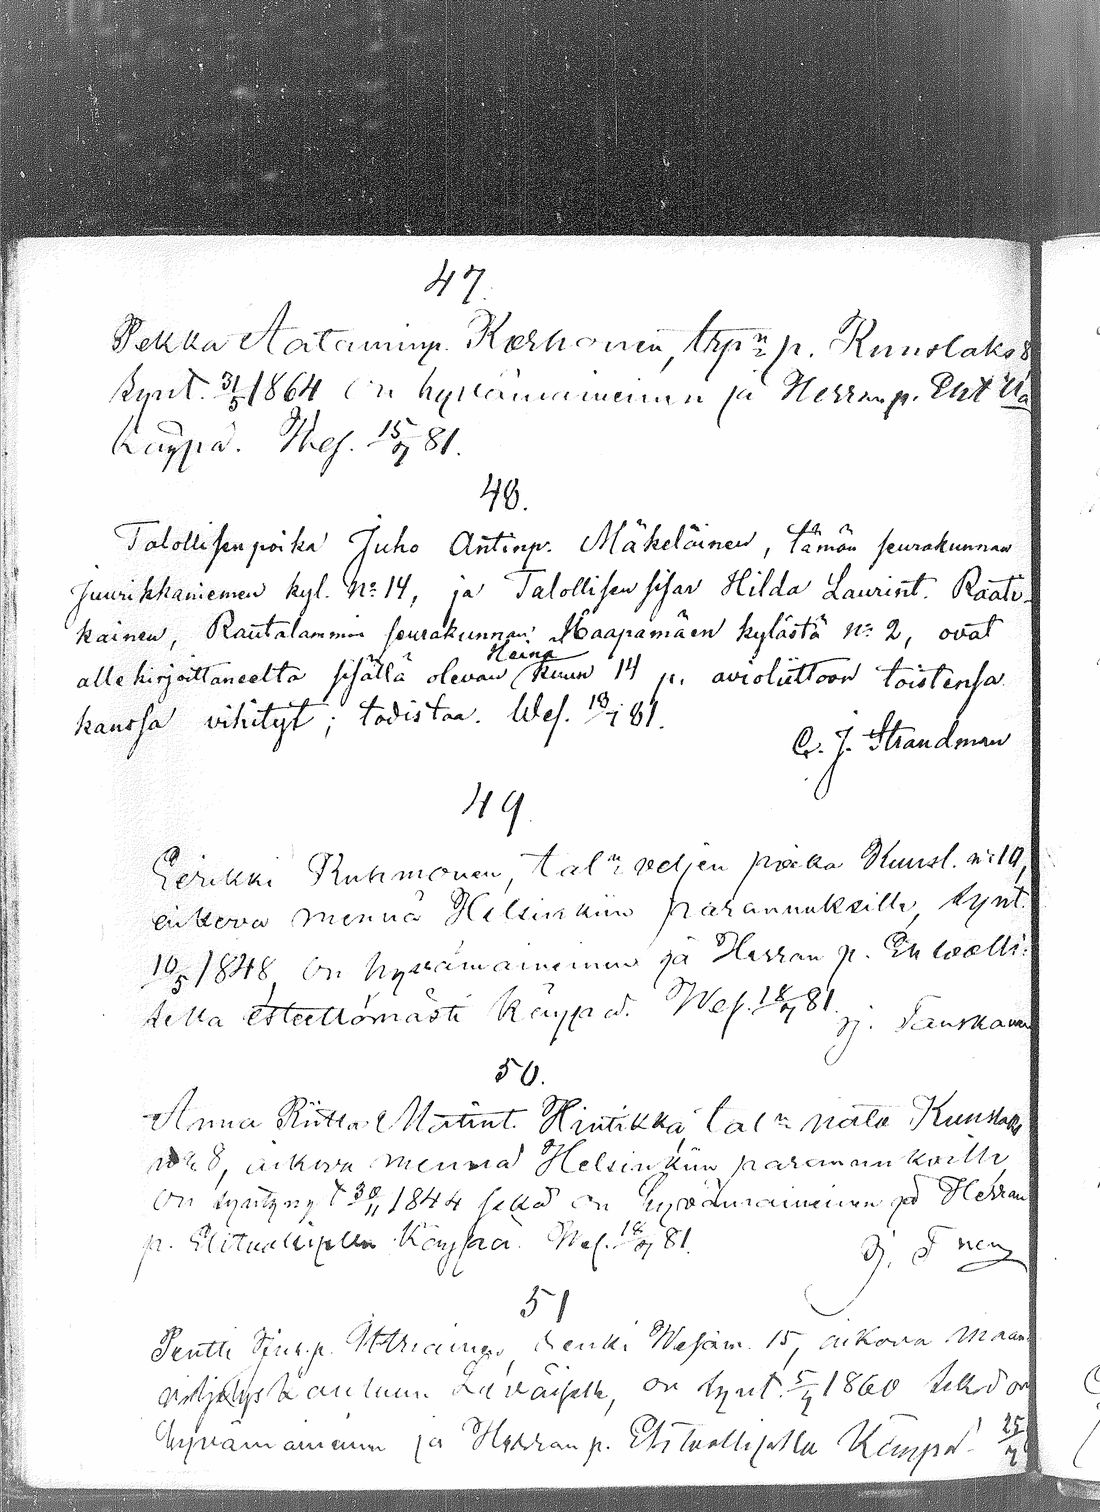 47.
Pekka Aataminp. Korhonen, trp:n p. Kuuslaks 8
synt. 31/5 1864 on hyvämaineinen ja Herran p. Eht:lla
käypä. Wes. 15/7 81.
48.
Talollisen poika Juho Antinp. Mäkeläinen, tämän seurakunnan
Juurikkaniemen kyl. No 14, ja Talollisen sisar Hilda Laurint. Raati-
kainen, Rautalammin seurakunnan Haapamäen kylästä No 2, ovat
allekirjoittaneelta sisällä olevan Heina kuun 14 p. avioliittoon toistensa
kanssa vihityt; todistaa. Wes. 18/7 81.
C. J. Strandman
49
Eerikki Ruhmonen, tal:n veljen poika Kuusl. No 10,
aikova mennä Helsinkiin parannuksille, synt.
10/5 1848, on hyvämaineinen ja Herran p. Ehtoolli-
sella esteettömästi käypä. Wes. 18/7 81.
Hj. Tanskanen
50.
Anna Riitta Matint. Hintikka, tal:n nato Kuuslaks
No 8, aikova mennä Helsinkiin parannuksille,
on syntynyt 30/11 1844 sekä on hyvämaineinen ja Herran
p. Ehtoollisella käypä. Wes. 18/7 81.
Hj. T nen
51
Pentti renki Wesam. 15, aikova maan
viljelyskouluun Leväselle, on synt. 5/4 1860 sekä on
hyvämaineinen ja Herran p. Ehtoollisella käypä 25/7